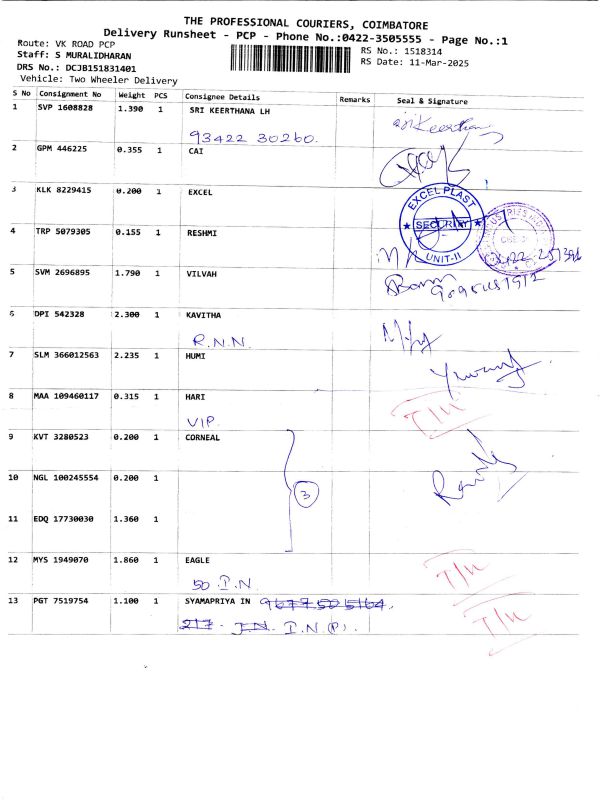 THE PROFESSIONAL COURIERS, COIMBATORE
Delivery Runsheet - PCP - Phone No.:0422-3505555 - Page No.:1
Route: VK ROAD PCP
Staff: S MURALIDHARAN
DRS No.: DCJB151831401
Vehicle: Two Wheeler Delivery
RS No.: 1518314
RS Date: 11-Mar-2025
S No Consignment No Weight PCS Consignee Details Remarks Seal & Signature
1 SVP 1608828 1.390 1 SRI KEERTHANA LH
93422 30260.
2 GPM 446225 0.355 1 CAI
3 KLK 8229415 0.200 1 EXCEL
EXCEL PLAST
SECURITY
UNIT-II
4 TRP 5079305 0.155 1 RESHMI
5 SVM 2696895 1.790 1 VILVAH
6 DPI 542328 2.300 1 KAVITHA
R.N.N.
7 SLM 366012563 2.235 1 HUMI
8 MAA 109460117 0.315 1 HARI
VIP.
T/N
9 KVT 3280523 0.200 1 CORNEAL
10 NGL 100245554 0.200 1
3
11 EDQ 17730030 1.360 1
12 MYS 1949070 1.860 1 EAGLE
50 I.N
T/N
13 PGT 7519754 1.100 1 SYAMAPRIYA IN
I.N.(P).
T/N